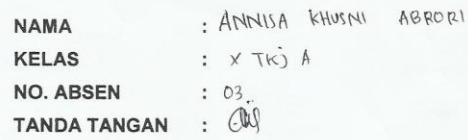 NAMA : ANNISA KHUSNI ABRORI
KELAS : X TKJ A
NO. ABSEN : 03
TANDA TANGAN :